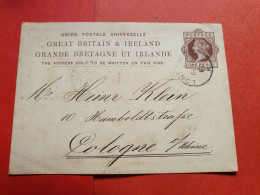 UNION POSTALE UNIVERSELLE
GREAT BRITAIN & IRELAND
GRANDE BRETAGNE ET IRLANDE
THE ADDRESS ONLY TO BE WRITTEN ON THIS SIDE.
Mr. Heinr Klein
10 Humboldtstrasse
Cologne s/Rhine